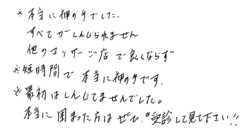 ※本当に神の手でした。
すべてがしんじられません
他のマッサージ店で良くならず
※短時間で本当に神の手です。
※最初はしんじてませんでした。
本当に困まった方はぜひ 受診して見て下さい!!